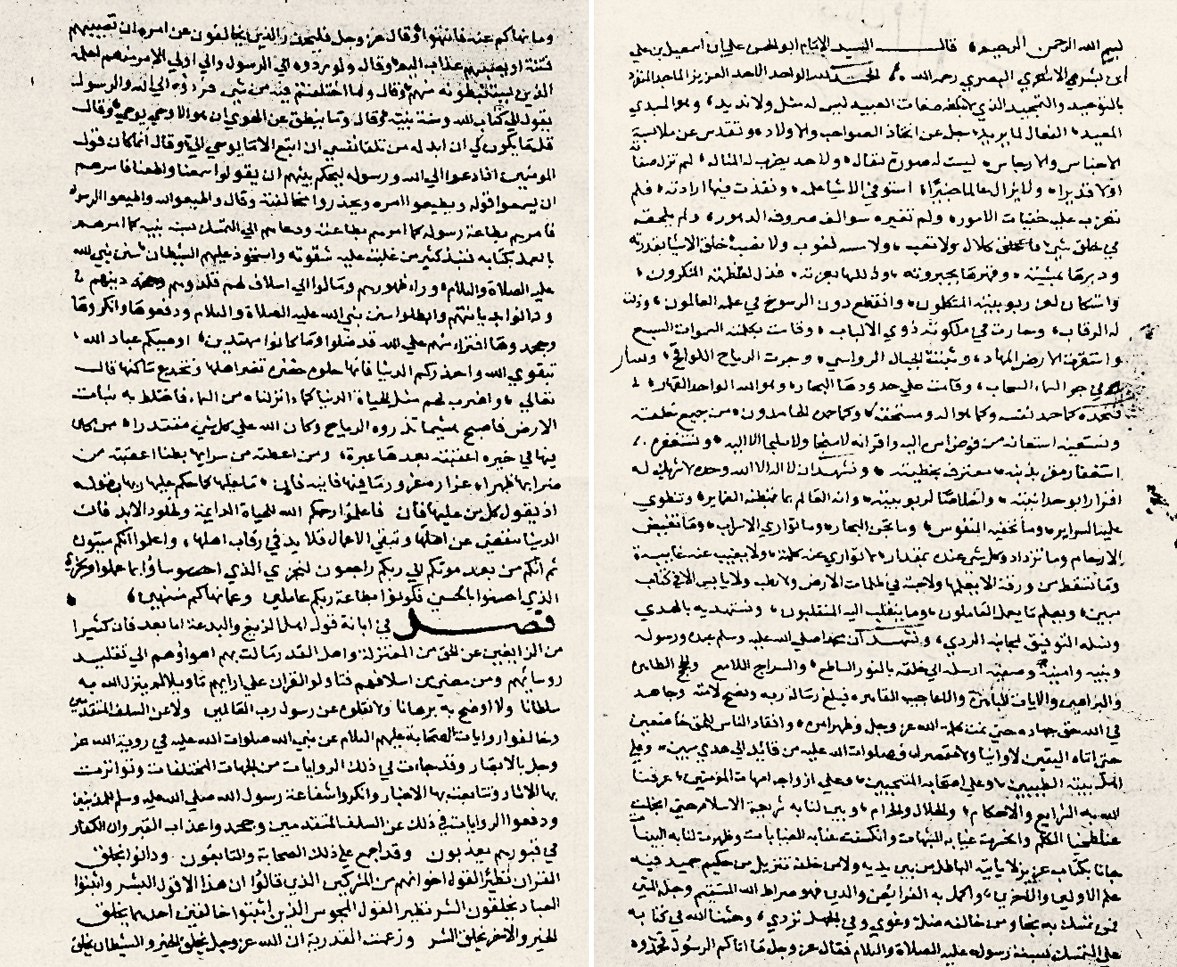 بسم الله الرحمن الرحيم قال السيد الامام ابو الحسن علي بن اسمعيل بن علي
ابن بشر الاشعري البصري رحمه الله الحمد لله الواحد الاحد العزيز الماجد المتفرد
بالتوحيد والتمجيد الذي لا تبلغه صفات العبيد ليس له مثل ولا نديد وهو المبدي
المعيد الفعال لما يريد جل عن اتخاذ الصواحب والاولاد وتقدس عن ملابسة
الاجناس والارجاس ليست له صورة تقال ولا حد يضرب له المثال لم يزل بصفاته
اولا قديرا ولا يزال عالما خبيرا استوفى الاشيا علمه ونفذت فيها ارادته فلم
تعزب عليه خفيات الامور ولم تغيره سوالف صروف الدهور ولم يلحقه
في خلق شيء مما خلق كلال ولا تعب ولا مسه لغوب ولا نصب خلق الاشيا بقدرته
ودبرها بمشيته وقهرها بجبروته وذللها بعزته فذل لعظمته المتكبرون
واستكان لعز ربوبيته المتكلمون وانقطع دون الرسوخ في علمه العالمون وذلت
له الرقاب وحارت في ملكوته ذوي الالباب وقامت بكلمته السموات السبع
واستقرت الارض المهاد وثبتت الجبال الرواسي وجرت الرياح اللواقح وسار
في جو السماء السحاب وقامت على حدودها البحار وهو الله الواحد القهار
فنحمده كما حمد نفسه وكما هو اهله ومستحقه وكما حمده الحامدون من جميع خلقه
ونستعينه استعانة من فوض امره اليه واقر انه لا منجا ولا ملجا الا اليه ونستغفره
استغفار مقر بذنبه معترف بخطيئته ونشهد ان لا اله الا الله وحده لا شريك له
اقرارا بوحدانيته واخلاصا لربوبيته وانه العالم بما تبطنه الضماير وتنطوي
عليه السراير وما تخفيه النفوس وما تجن البحار وما تواري الاسراب وما تغيض
الارحام وما تزداد وكل شيء عنده بمقدار لا تواري عنه كلمة ولا يغيب عنه غايبة
وما تسقط من ورقة الا يعلمها ولا حبة في ظلمات الارض ولا رطب ولا يابس الا في كتاب
مبين ويعلم ما يعمل العاملون وما ينقلب اليه المنقلبون ونستهديه بالهدى
ونسله التوفيق لمجانبة الردى ونشهد ان محمدا صلى الله عليه وسلم عبده ورسوله
ونبيه وامينه وصفيه ارسله الى خلقه بالنور الساطع والسراج اللامع والحجج الظاهرة
والبراهين والايات الباهرة والاعاجيب القاهرة فبلغ رسالة ربه ونصح لامته وجاهد
في الله حق جهاده حتى تمت كلمة الله عز وجل وظهر امره وانقاد الناس للحق خاضعين
حتى اتاه اليقين لا وانيا ولا مقصرا فصلوات الله عليه من قايد الى هدى مبين وعلى
اهل بيته الطيبين وعلى اصحابه المنتجبين وعلى ازواجه امهات المؤمنين عرفنا
الله به الشرايع والاحكام والحلال والحرام وبين لنا به شريعة الاسلام حتى انجلت
عنا طخيا الظلم وانحسرت عنا به الشبهات وانكشفت عنا به الغيابات وظهرت لنا به البينات
جانا بكتاب عزيز لا ياتيه الباطل من بين يديه ولا من خلفه تنزيل من حكيم حميد فيه
علم الاولين والاخرين واكمل به الفرائض والدين فهو صراط الله المستقيم وحبله المتين
فمن تمسك به نجا ومن خالفه ضل وغوى وفي الجهل تردى وحثنا الله في كتابه
على التمسك بسنة رسوله عليه الصلاة والسلام فقال عز وجل ما اتاكم الرسول فخذوه
وما نهاكم عنه فانتهوا وقال عز وجل فليحذر الذين يخالفون عن امره ان تصيبهم
فتنة او يصيبهم عذاب اليم وقال ولو ردوه الى الرسول والى اولي الامر منهم لعلمه
الذين يستنبطونه منهم وقال وما اختلفتم فيه من شيء فردوه الى الله والرسول
يقول الى كتاب الله وسنة نبيه وقال وما ينطق عن الهوى ان هو الا وحي يوحى وقال
قل ما يكون لي ان ابدله من تلقا نفسي ان اتبع الا ما يوحى الي وقال انما كان قول
المومنين اذا دعوا الى الله ورسوله ليحكم بينهم ان يقولوا سمعنا واطعنا فامرهم
ان يسمعوا قوله ويطيعوا امره ويحذروا مخالفته وقال واطيعوا الله واطيعوا الرسول
فامرهم بطاعة رسوله كما امرهم بطاعته ودعاهم الى التمسك بسنة نبيه كما امرهم
بالعمل بكتابه فنبذ كثير من غلبت عليه شقوته واستحوذ عليهم الشيطان سنن نبي الله
عليه الصلاة والسلام وراء ظهورهم ومالوا الى اسلاف لهم قلدوهم دينهم
ودانوا بديانتهم وابطلوا سنن نبي الله عليه الصلاة والسلام ودفعوها وانكروها
وجحدوها افتراء منهم على الله قد ضلوا وما كانوا مهتدين اوصيكم عباد الله
بتقوى الله واحذركم الدنيا فانها حلوة خضرة تغر اهلها وتخدع ساكنها قال
تعالى واضرب لهم مثل الحياة الدنيا كماء انزلناه من السماء فاختلط به نبات
الارض فاصبح هشيما تذروه الرياح وكان الله على كل شيء مقتدرا من كان
فيها في حبره اعقبته بعدها عبرة ومن اعطته من سرايها بطنا اعقبته من
ضرايها ظهرا غرارة غرور ما فيها فانية فاني ما عليها كما حكم عليها ربها بقوله
اذ يقول كل من عليها فان فاعملوا رحمكم الله للحياة الدايمة ولخلود الابد فان
الدنيا تنقضي عن اهلها وتبقى الاعمال قلايد في رقاب اهلها واعلموا انكم ميتون
ثم انكم من بعد موتكم الى ربكم راجعون ليجزي الذي اساؤا بما عملوا ويجزي
الذي احسنوا بالحسنى فكونوا بطاعة ربكم عاملين وعما نهاكم منتهين
فصل في ابانة قول اهل الزيغ والبدعة اما بعد فان كثيرا
من الزايغين عن الحق من المعتزلة واهل القدر مالت بهم اهواؤهم الى تقليد
روسائهم ومن مضى من اسلافهم فتاولوا القران على ارايهم تاويلا لم ينزل الله به
سلطانا ولا اوضح به برهانا ولا نقلوه عن رسول رب العالمين ولا عن السلف المتقدمين
وخالفوا روايات الصحابة عليهم السلام عن نبي الله صلوات الله عليه في روية الله عز
وجل بالابصار وقد جاءت في ذلك الروايات من الجهات المختلفات وتواترت
بها الاثار وتتابعت بها الاخبار وانكروا شفاعة رسول الله صلى الله عليه وسلم للمذنبين
ودفعوا الروايات في ذلك عن السلف المتقدمين وجحدوا عذاب القبر وان الكفار
في قبورهم يعذبون وقد اجمع على ذلك الصحابة والتابعون ودانوا بخلق
القران نظيرا لقول اخوانهم من المشركين الذين قالوا ان هذا الا قول البشر واثبتوا
العباد يخلقون الشر نظير القول المجوس الذين اثبتوا خالقين احدهما يخلق
الخير والاخر يخلق الشر وزعمت القدرية ان الله عز وجل يخلق الخير والشيطان يخلق